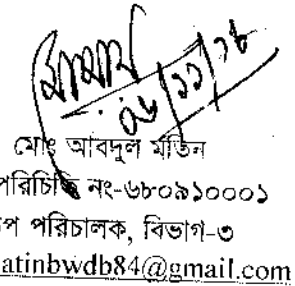 ০৬/১১/১৮
মোঃ আবদুল মতিন
পরিচিতি নং-৬৮০৯১০০০১
প পরিচালক, বিভাগ-৩
atinbwdb84@gmail.com